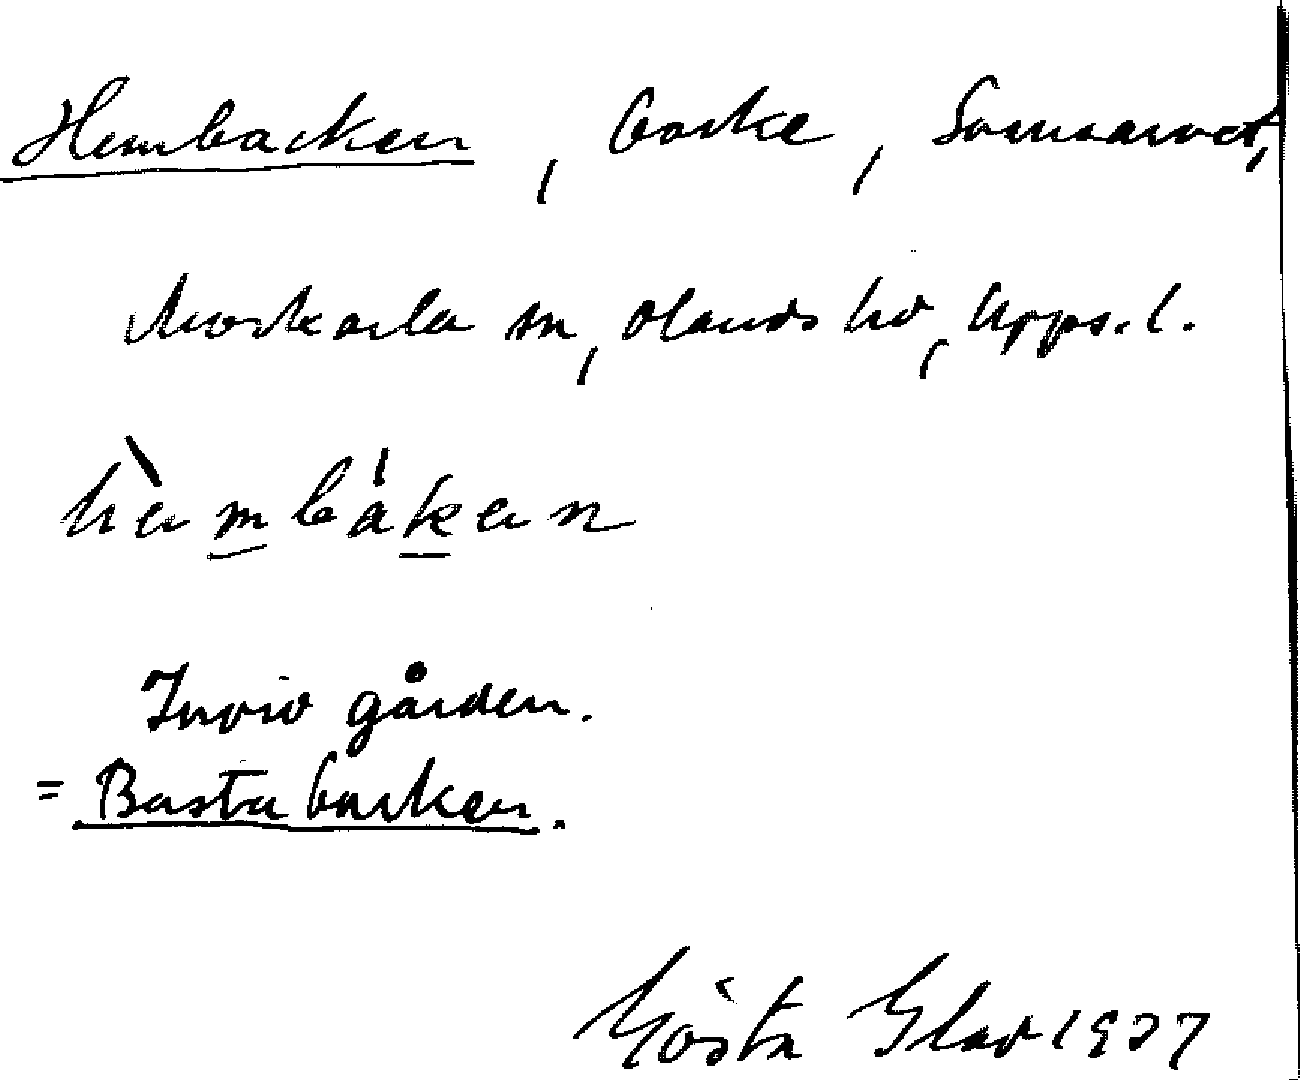 Hembacken, backe, Somsarvet,
Morkarla sn, Olands hd, Upps. l.
hèmbáken
Invid gården.
= Bastubacken.
Gösta Glad 1937